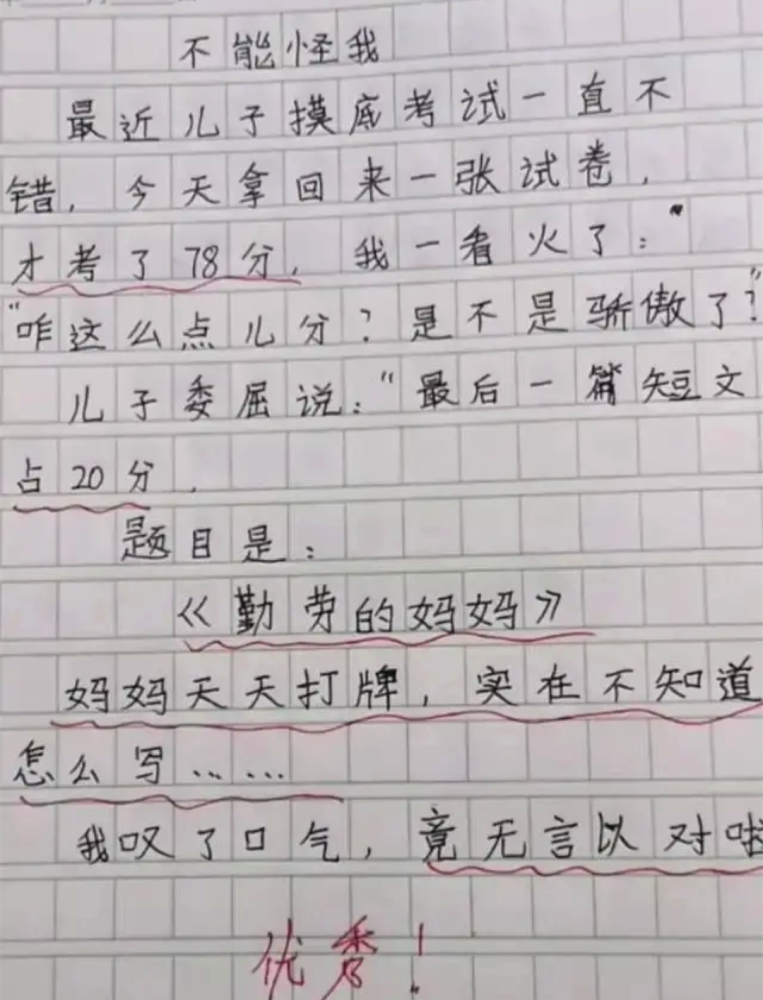 不能怪我
最近儿子摸底考试一直不
错，今天拿回来一张试卷，
才考了78分，我一看火了："
"咋这么点儿分？是不是骄傲了？"
儿子委屈说："最后一篇短文
占20分．
题目是：
《勤劳的妈妈》
妈妈天天打牌，实在不知道
怎么写……
我叹了口气，竟无言以对啦
优秀！